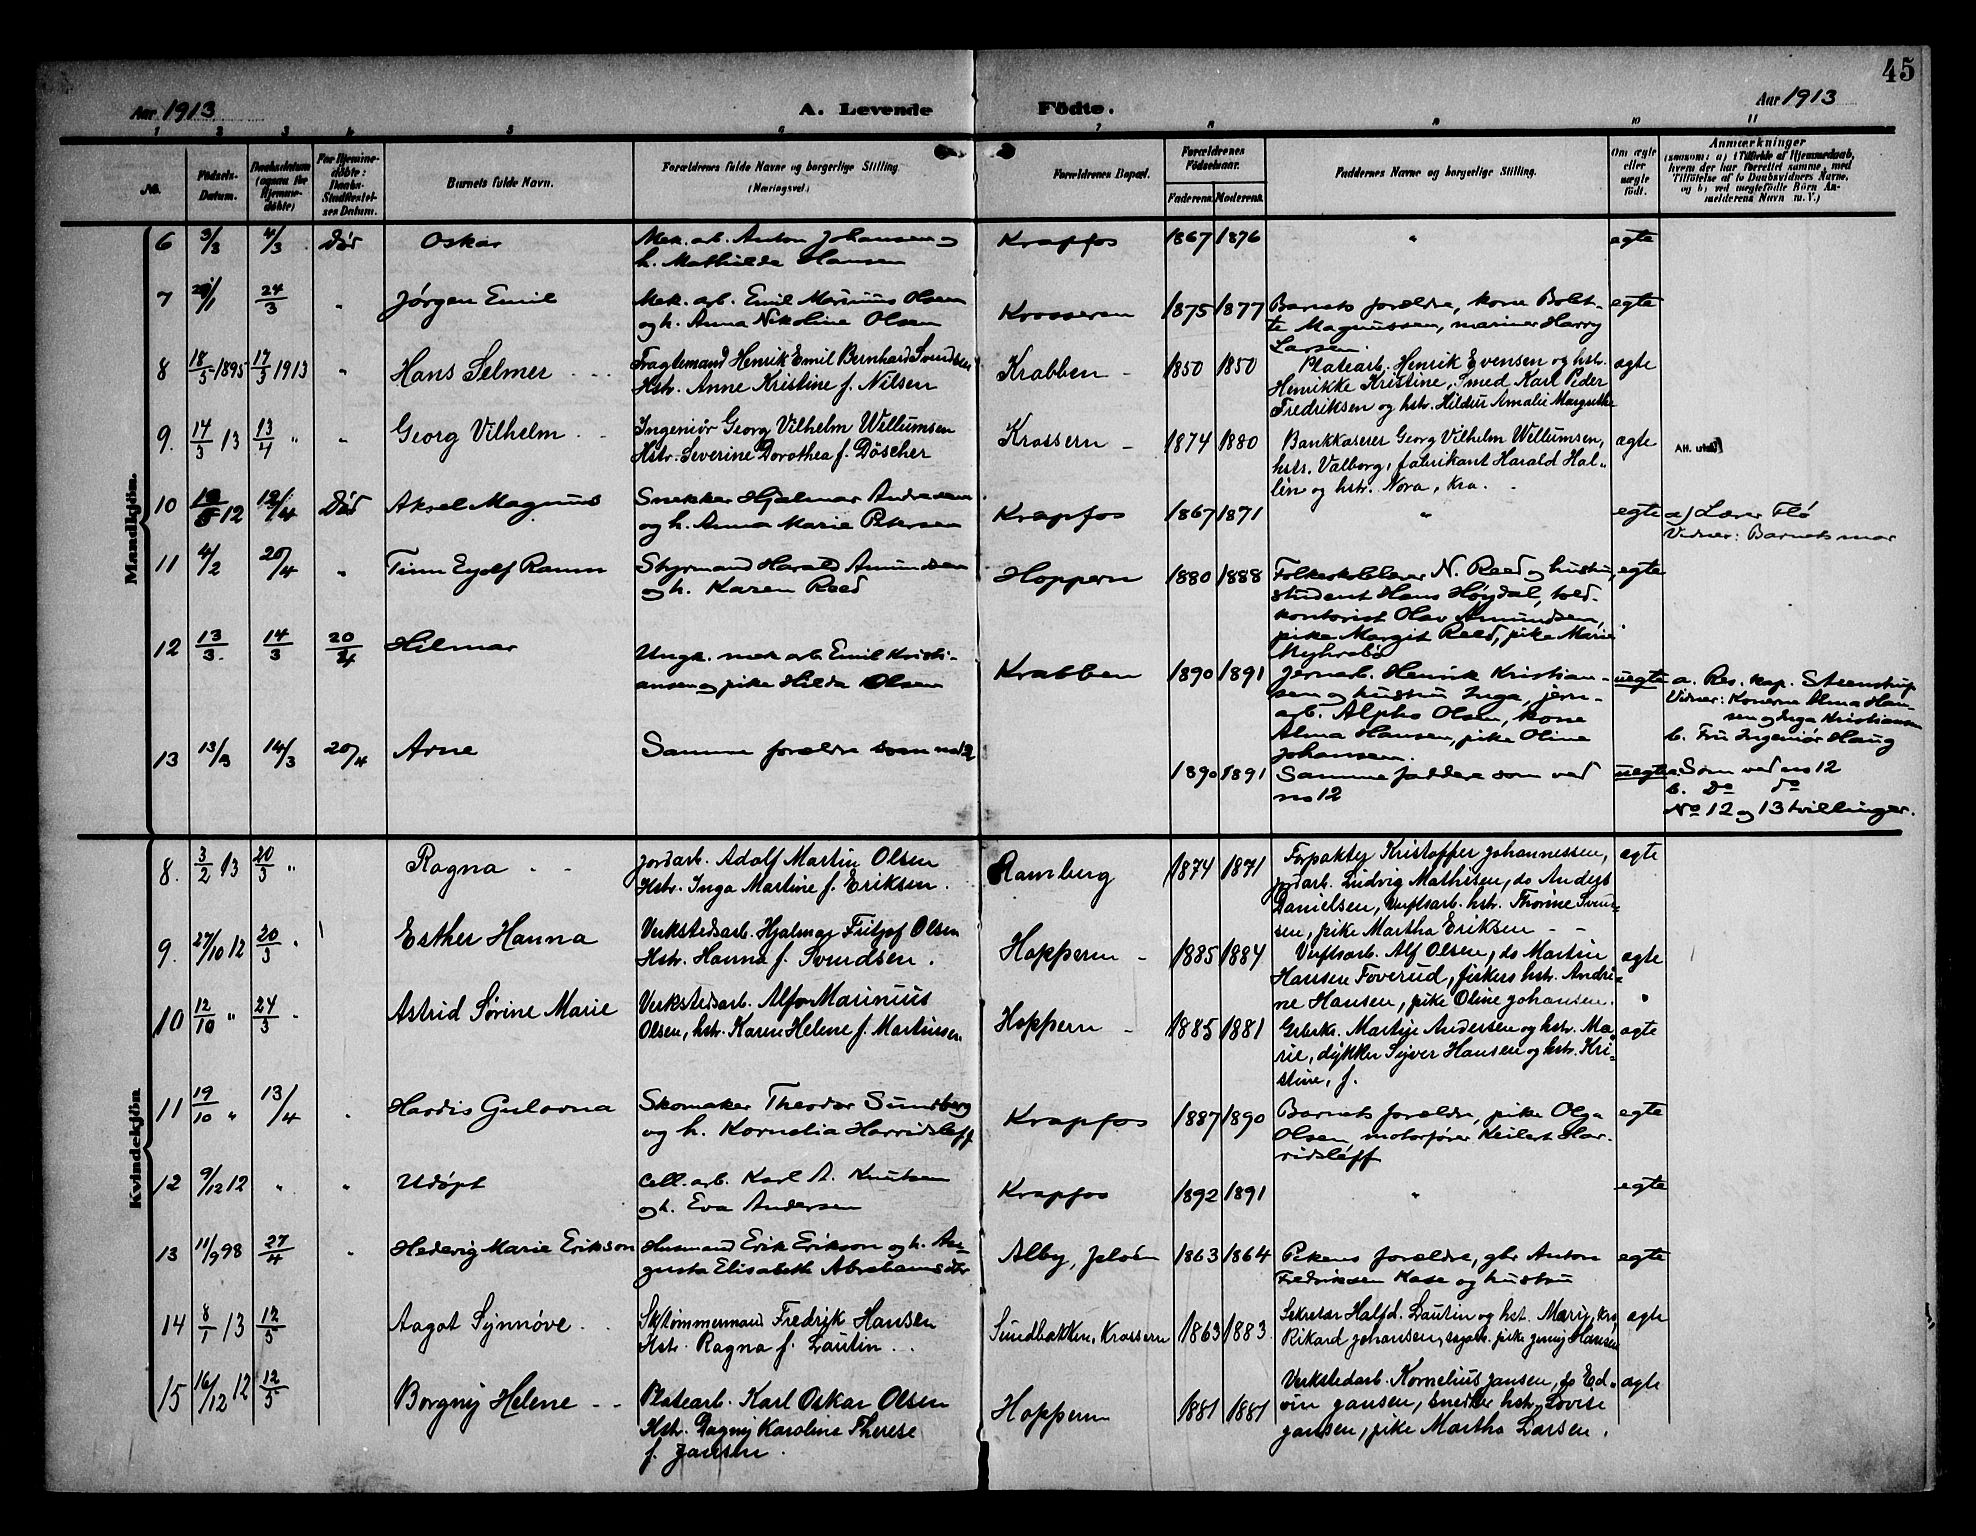 45
Aar 1913
A. Levende
Födte.
Aar 1913
1 2 3 4 5 6 7 8 9 10 11
No.
Födsels-
Datum.
Daabsdatum
(ogsaa for
Hjemme-
døbte)
For Hjemme-
døbte:
Daabs-
Stadfæstel-
ses Datum.
Barnets fulde Navn.
Forældrenes fulde Navne og borgerlige Stilling
(Næringsvei.)
Forældrenes Bopæl.
Forældrenes
Födselsaar.
Faderens. Moderens.
Faddernes Navne og borgerlige Stilling.
Om ægte
eller
uægte
født.
Anmærkninger
(saasom: a) i Tilfælde af Hjemmedaab,
hvem der har forrettet samme, med
Tilføielse af to Daabsvidners Navne,
og b) ved uegtefødte Börn An-
melderens Navn m. V.)
Mandkjön.
6 3/3 4/3 Død Oskar Mek. arb. Anton Johansen og
h. Mathilde Hansen
Krapfos 1867 1876 " egte
7 /1 24/3 " Jørgen Emil Mek. arb. Emil Marinius Olsen
og h. Anna Nikoline Olsen
Krosseren 1875 1877 Barnets forældre, kone Bolet-
te Magnussen, mariner Harry
Larsen. egte
8 18/5 1895 17/3 1913 " Hans Selmer Fragtemand Henrik Emil Bernhard Svendsen
Hstr. Anne Kristine f. Nilsen
Krabben 1850 1850 Platearb. Henrik Evensen og hstr.
Henrikke Kristine, Smed Karl Peder
Fredriksen og hstr. Hildur Amalie Margrethe ægte
9. 14/3 13 13/4 " " Georg Vilhelm Ingeniør Georg Vilhelm Willumsen
Hstr. Severine Dorothea f. Döscher
Krossern 1874 1880 Bankkaserer Georg Vilhelm Willumsen,
hstr. Valborg, fabrikant Harald Hal-
lén og hstr. Nora, Kra. ægte Att. utst.
10 12 /4 Død Aksel Magnus Snekker Hjalmar Andresen
og h. Anna Marie Petersen
Krapfos 1867 1871 " egte a) Lærer Flö
Vidner: Barnets mor
11 4/2 20/4 " Eyolf Ramm Styrmand Harald Amundsen
og h. Karen Reed
Hoppern 1880 1888 Folkeskolelærer N. Reed og hustru,
student Hans Høydal, told-
kontorist Olav Amundsen,
pike Margit Reed, pike Marie
egte
12 13/3. 14/3 20/4 Hilmar Ungk. mek arb Emil Kristi-
ansen og pike Hilda Olsen
Krabben 1890 1891 Jernarb. Henrik Kristian-
sen og hustru Inga, jern-
arb. Alpho Olsen, kone
Alma Hansen, pike Oline
Johansen. uegte a. Res. kap. Steenstrup
Vidner: Konerne Alma Han-
sen og Inga Kristiansen
b. Fru Ingeniør Haug
13 13/3 14/3 20/4 Arne Samme forældre som no 12
1890 1891 Samme faddere som ved
no 12 uegte a. Som ved no 12
b. Do do
No 12 og 13 tvillinger.
Kvindekjön
8. 3/2 13 20/3 " Ragna Jordarb. Adolf Martin Olsen
Hstr. Inga Martine f. Eriksen.
Ramberg 1874 1871 Forpakter Kristoffer Johannessen,
jordarb. Ludvig Mathisen, do Anders
Danielsen, Verftsarb. hstr. Thorine Sven-
sen, pike Martha Eriksen ægte
9. 27/10 12 20/3 " Esther Hanna Verkstedsarb. Hjalmar Fritjof Olsen
Hstr. Hanna f. Svendsen.
Hoppern 1885 1884 Verftsarb. Alf Olsen, do Martin
Hansen Foverud, fiskers hstr. Andri-
ne Hansen, pike Oline Johansen. ægte
10 12/10 " 24/3 " Astrid Sørine Marie Verkstedsarb. Alfo Marinius
Olsen, hstr. Karen Helene f. Martinsen.
Hoppern 1885 1881 Gbrkr. Martin Andersen og hstr. Ma-
rie, dykker Syver Hansen og hstr. Kri-
stine, f. ægte
11 19/10 " 13/4 " Hardis Gulovna Skomaker Theodor Sundberg
og h. Kornelia Harridsleff
Krapfos 1887 1890 Barnets forældre, pike Olga
Olsen, motorfører Keilert Har-
ridsleff egte
12 9/12 12 " " Udöpt Cell. arb. Karl A. Knutsen
og h. Eva Andersen
Krapfos 1892 1891 " egte
13 11/9 98 27/4 " Hedevig Marie Erikson Husmand Erik Erikson og h. Au-
gusta Elisabeth Abrahamsdtr
Alby, Jeløen 1863 1864 Pikens forældre, gbr Anton
Fredriksen Kase og hustru egte
14 8/1 13 12/5 Aagot Synnøve Sktømmermand Fredrik Hansen
Hstr. Ragna f. Lautin
Sundbakken, Krossern 1863 1883 Sekretær Halfd. Lautin og hst. Mary, Kra,
Rikard Johansen, sagarb. pike Jenny Hansen ægte
15 16/12 12 12/5 Borgny Helene Platearb. Karl Oskar Olsen
Hstr. Dagny Karoline Therese
f. Jansen.
Hoppern 1881 1881 Verkstedarb. Kornelius Jansen, do Ed-
vin Jansen, snedker hstr. Lovise
Jansen, pike Martha Larsen. ægte